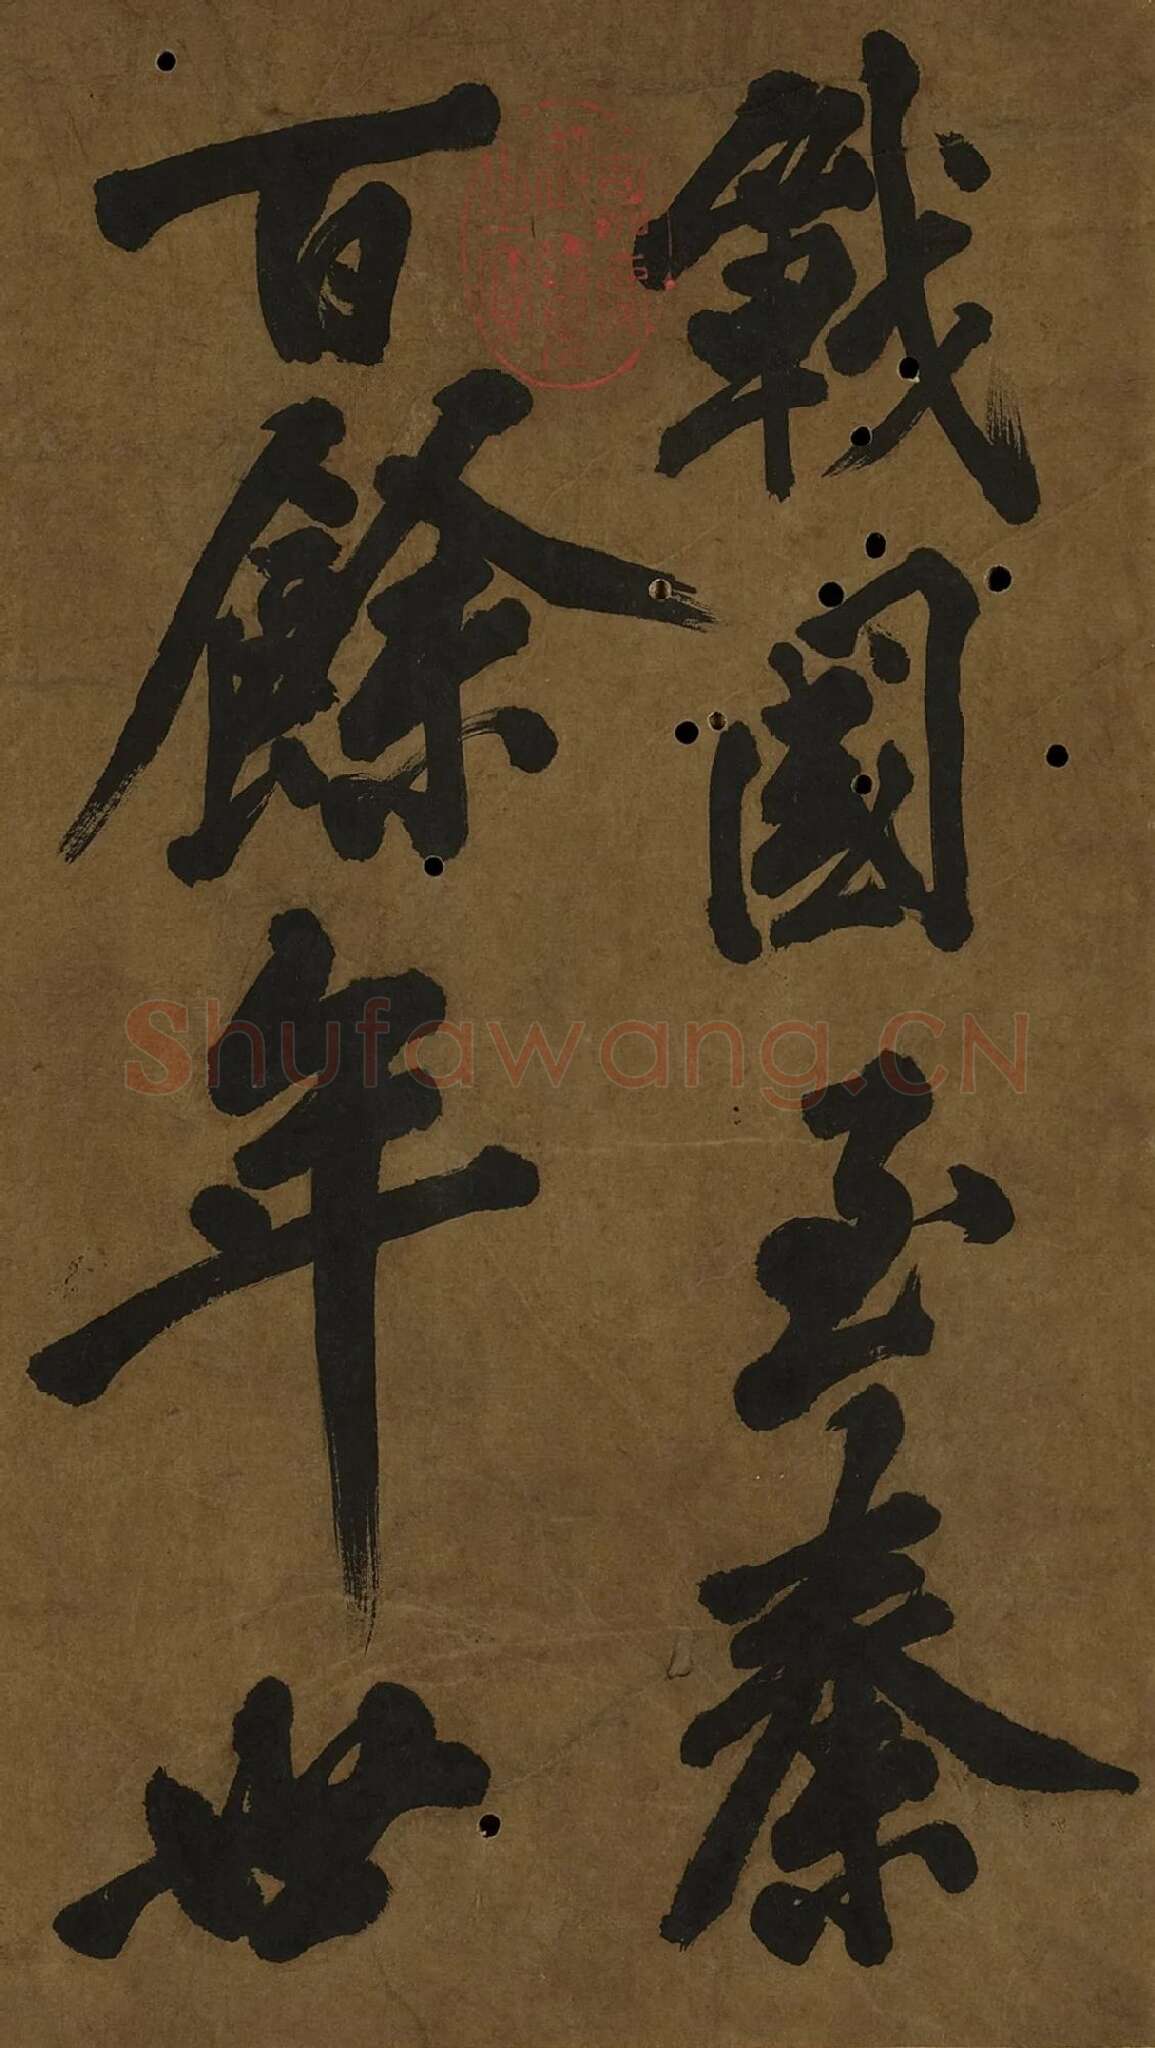 戰國至秦
百餘年世
Shufawang.CN